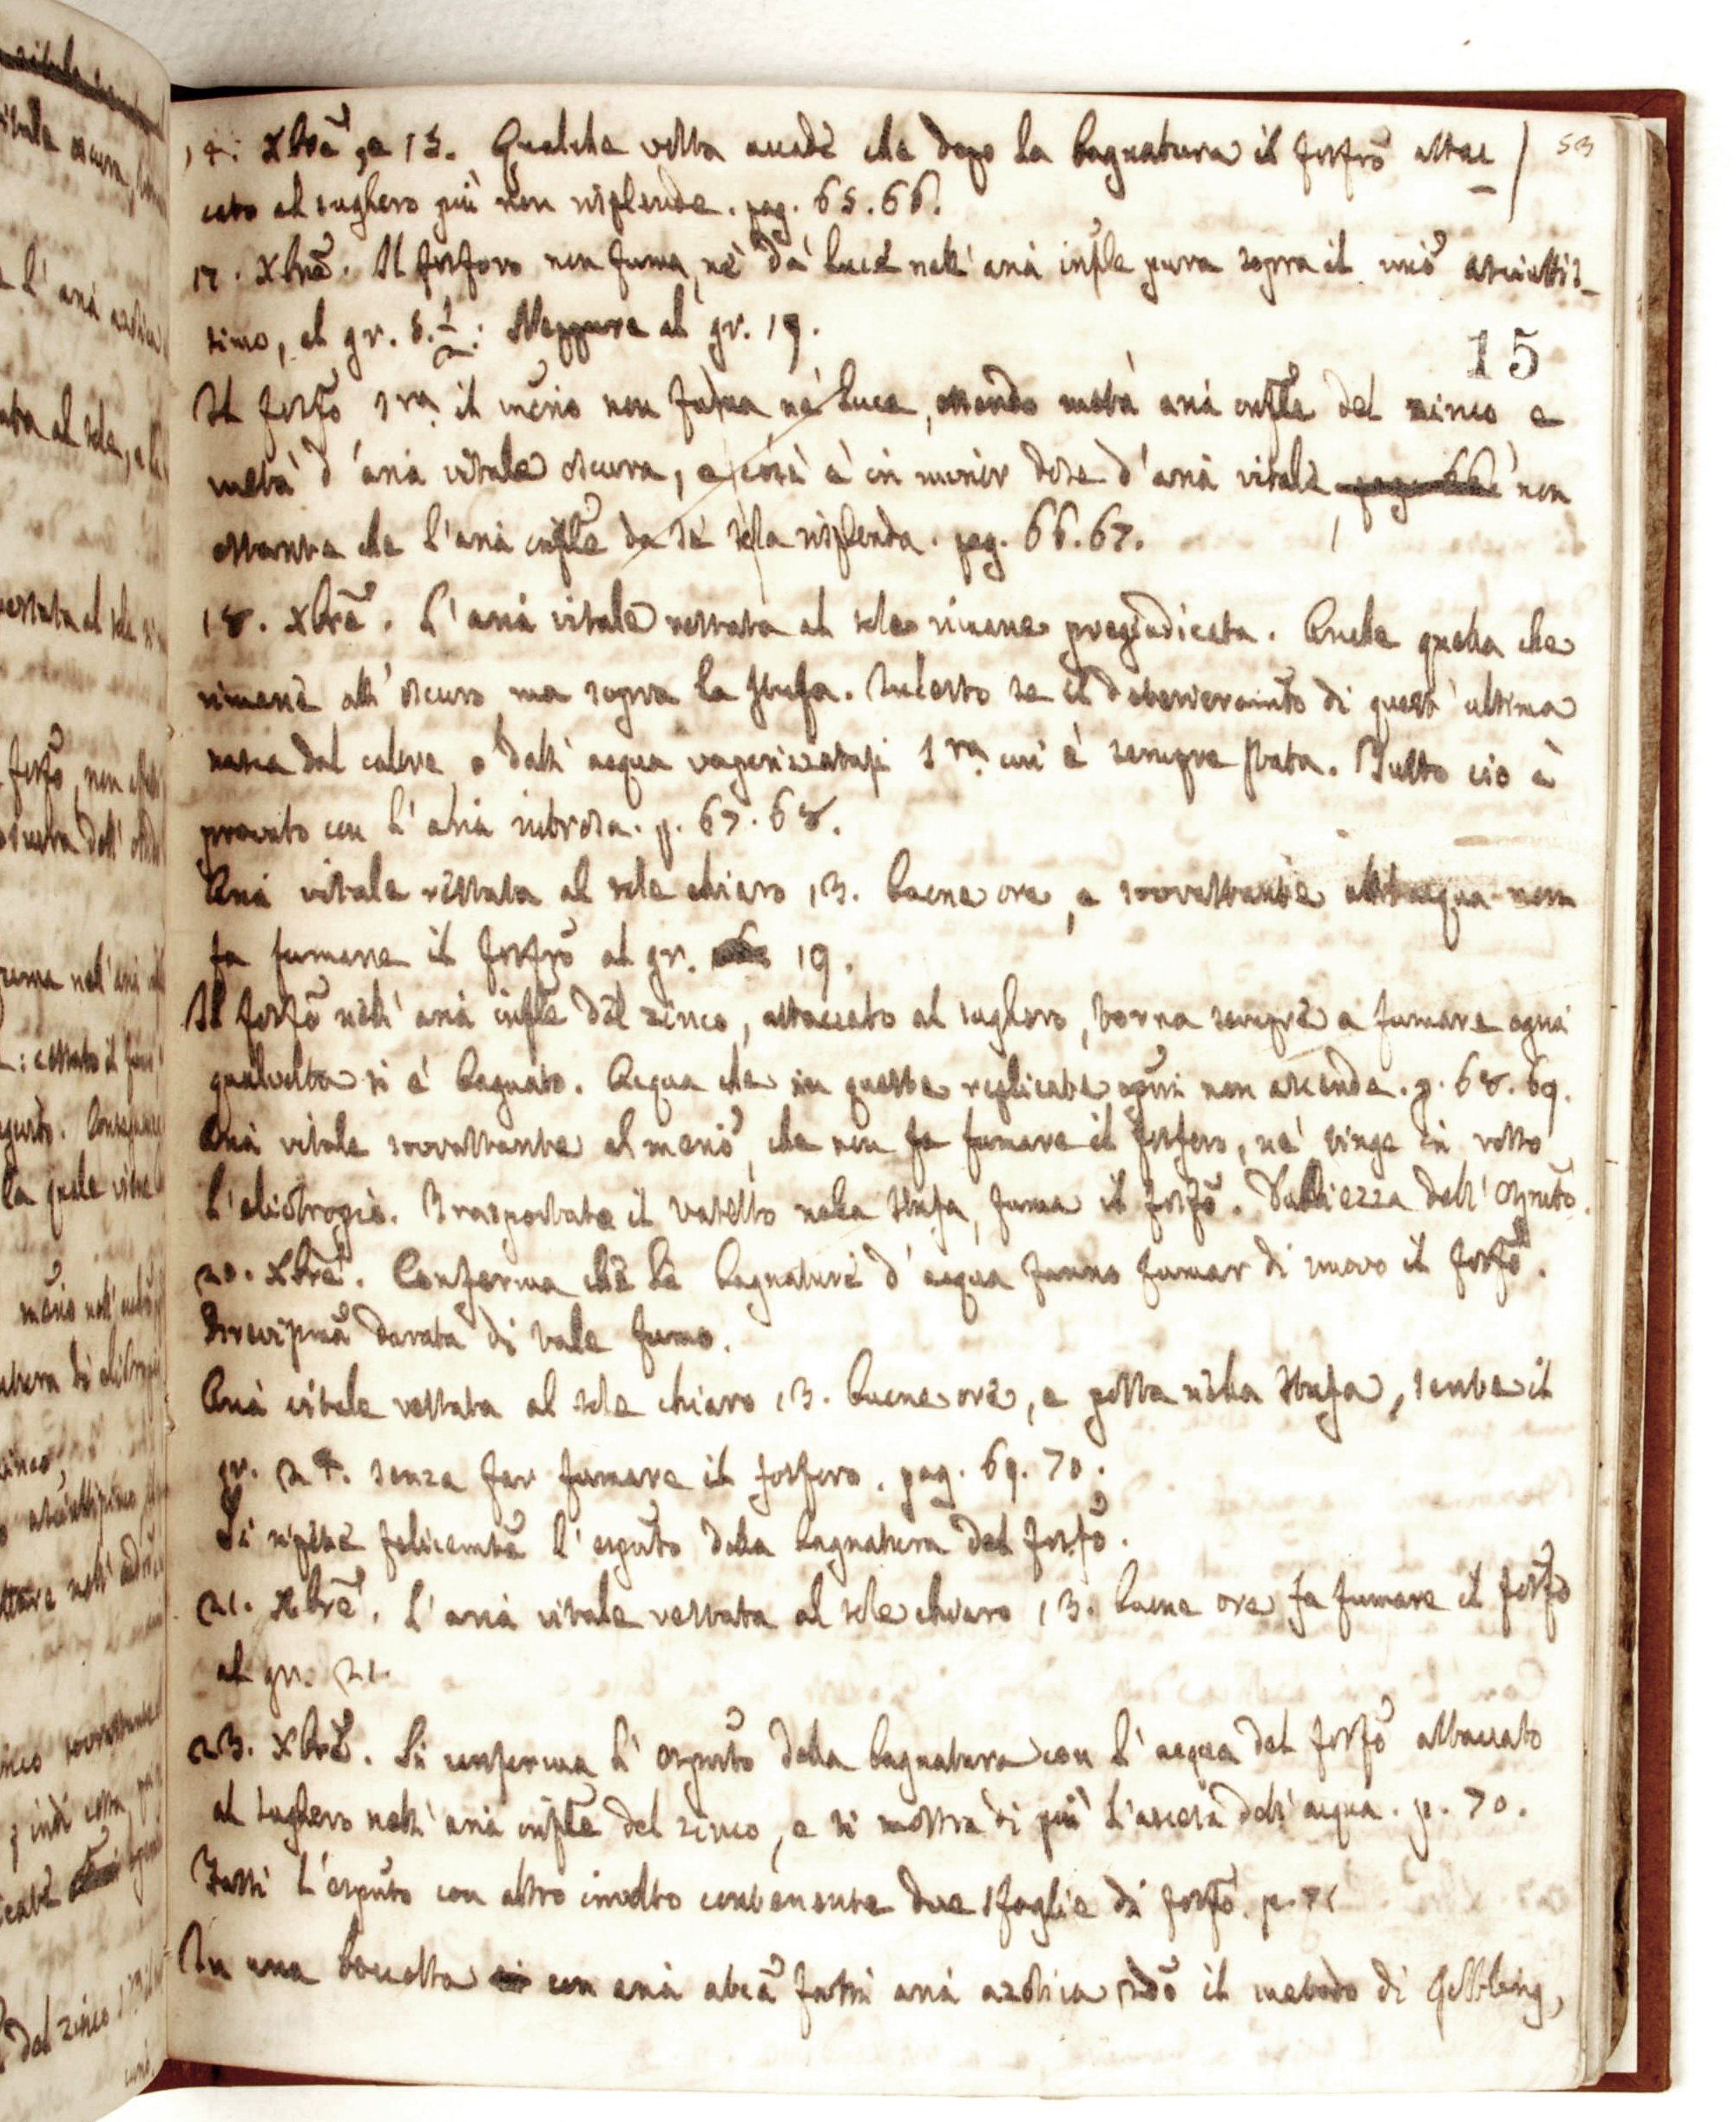 14. Xbre, e 15. Qualche volta accade che dopo la bagnatura il fosfro attac
53
cato al sughero più non risplende. pag. 65.66.
17. Xbre. Il fosforo non fuma, nè dà luce nell'aria infle pura sopra il mrio asciuttis-
simo, al gr. 8. 1/2: Neppure al gr. 19.
15
Il fosfo sra il mrio non fuma nè luce, essendo metà aria infle del zinco e
metà d'aria vitale oscura, e così è in minor dose d'aria vitale non
ostante che l'aria infle da sè sola risplenda. pag. 66.67.
18. Xbre. L'aria vitale restata al sole rimane pregiudicata. Anche quella che
rimane all'oscuro ma sopra la stufa. Incerto se il deterioramto di quest'ultima
nasca dal calore o dall'acqua vaporizzatasi sra cui è sempre stata. Tutto ciò è
provato con l'aria nitrosa. p. 67.68.
Aria vitale restata al sole chiaro 13. buone ore, e sovrastante all'acqua non
fa fumare il fosfro al gr. 19.
Il fosfo nell'aria infle del zinco, attaccato al sughero, torna sempre a fumare ogni
qualvolta si è bagnato. Acqua che in queste replicate non ascende. p. 68.69.
Aria vitale sovrastante al mrio, che non fa fumare il fosforo, nè tinge in rosso
l'elitropio. Trasportato il vasetto nella stufa, fuma il fosfo. Dubbiezza dell'esprto.
20. Xbre. Conferma che le bagnature d'acqua fanno fumar di nuovo il fosfo.
durata di tale fumo.
Aria vitale restata al sole chiaro 13. buone ore, e posta nella stufa, sente il
gr. 24. senza far fumare il fosforo. pag. 69.70.
Si ripete felicemte l'esprto della bagnatura del fosfo.
21. Xbre. L'aria vitale restata al sole chiaro 13. buone ore fa fumare il fosfo
al gr. 21.
23. Xbre. Si conferma l'esprto della bagnatura con l'acqua del fosfo attaccato
al sughero nell'aria infle del zinco, e si mostra di più l'ascesa dell'acqua. p. 70.
Fassi l'esprto con altro involto contenente due sfoglie di fosfo. p. 71
In una boccetta con aria atca fassi aria azotica sdo il metodo di Gottling,